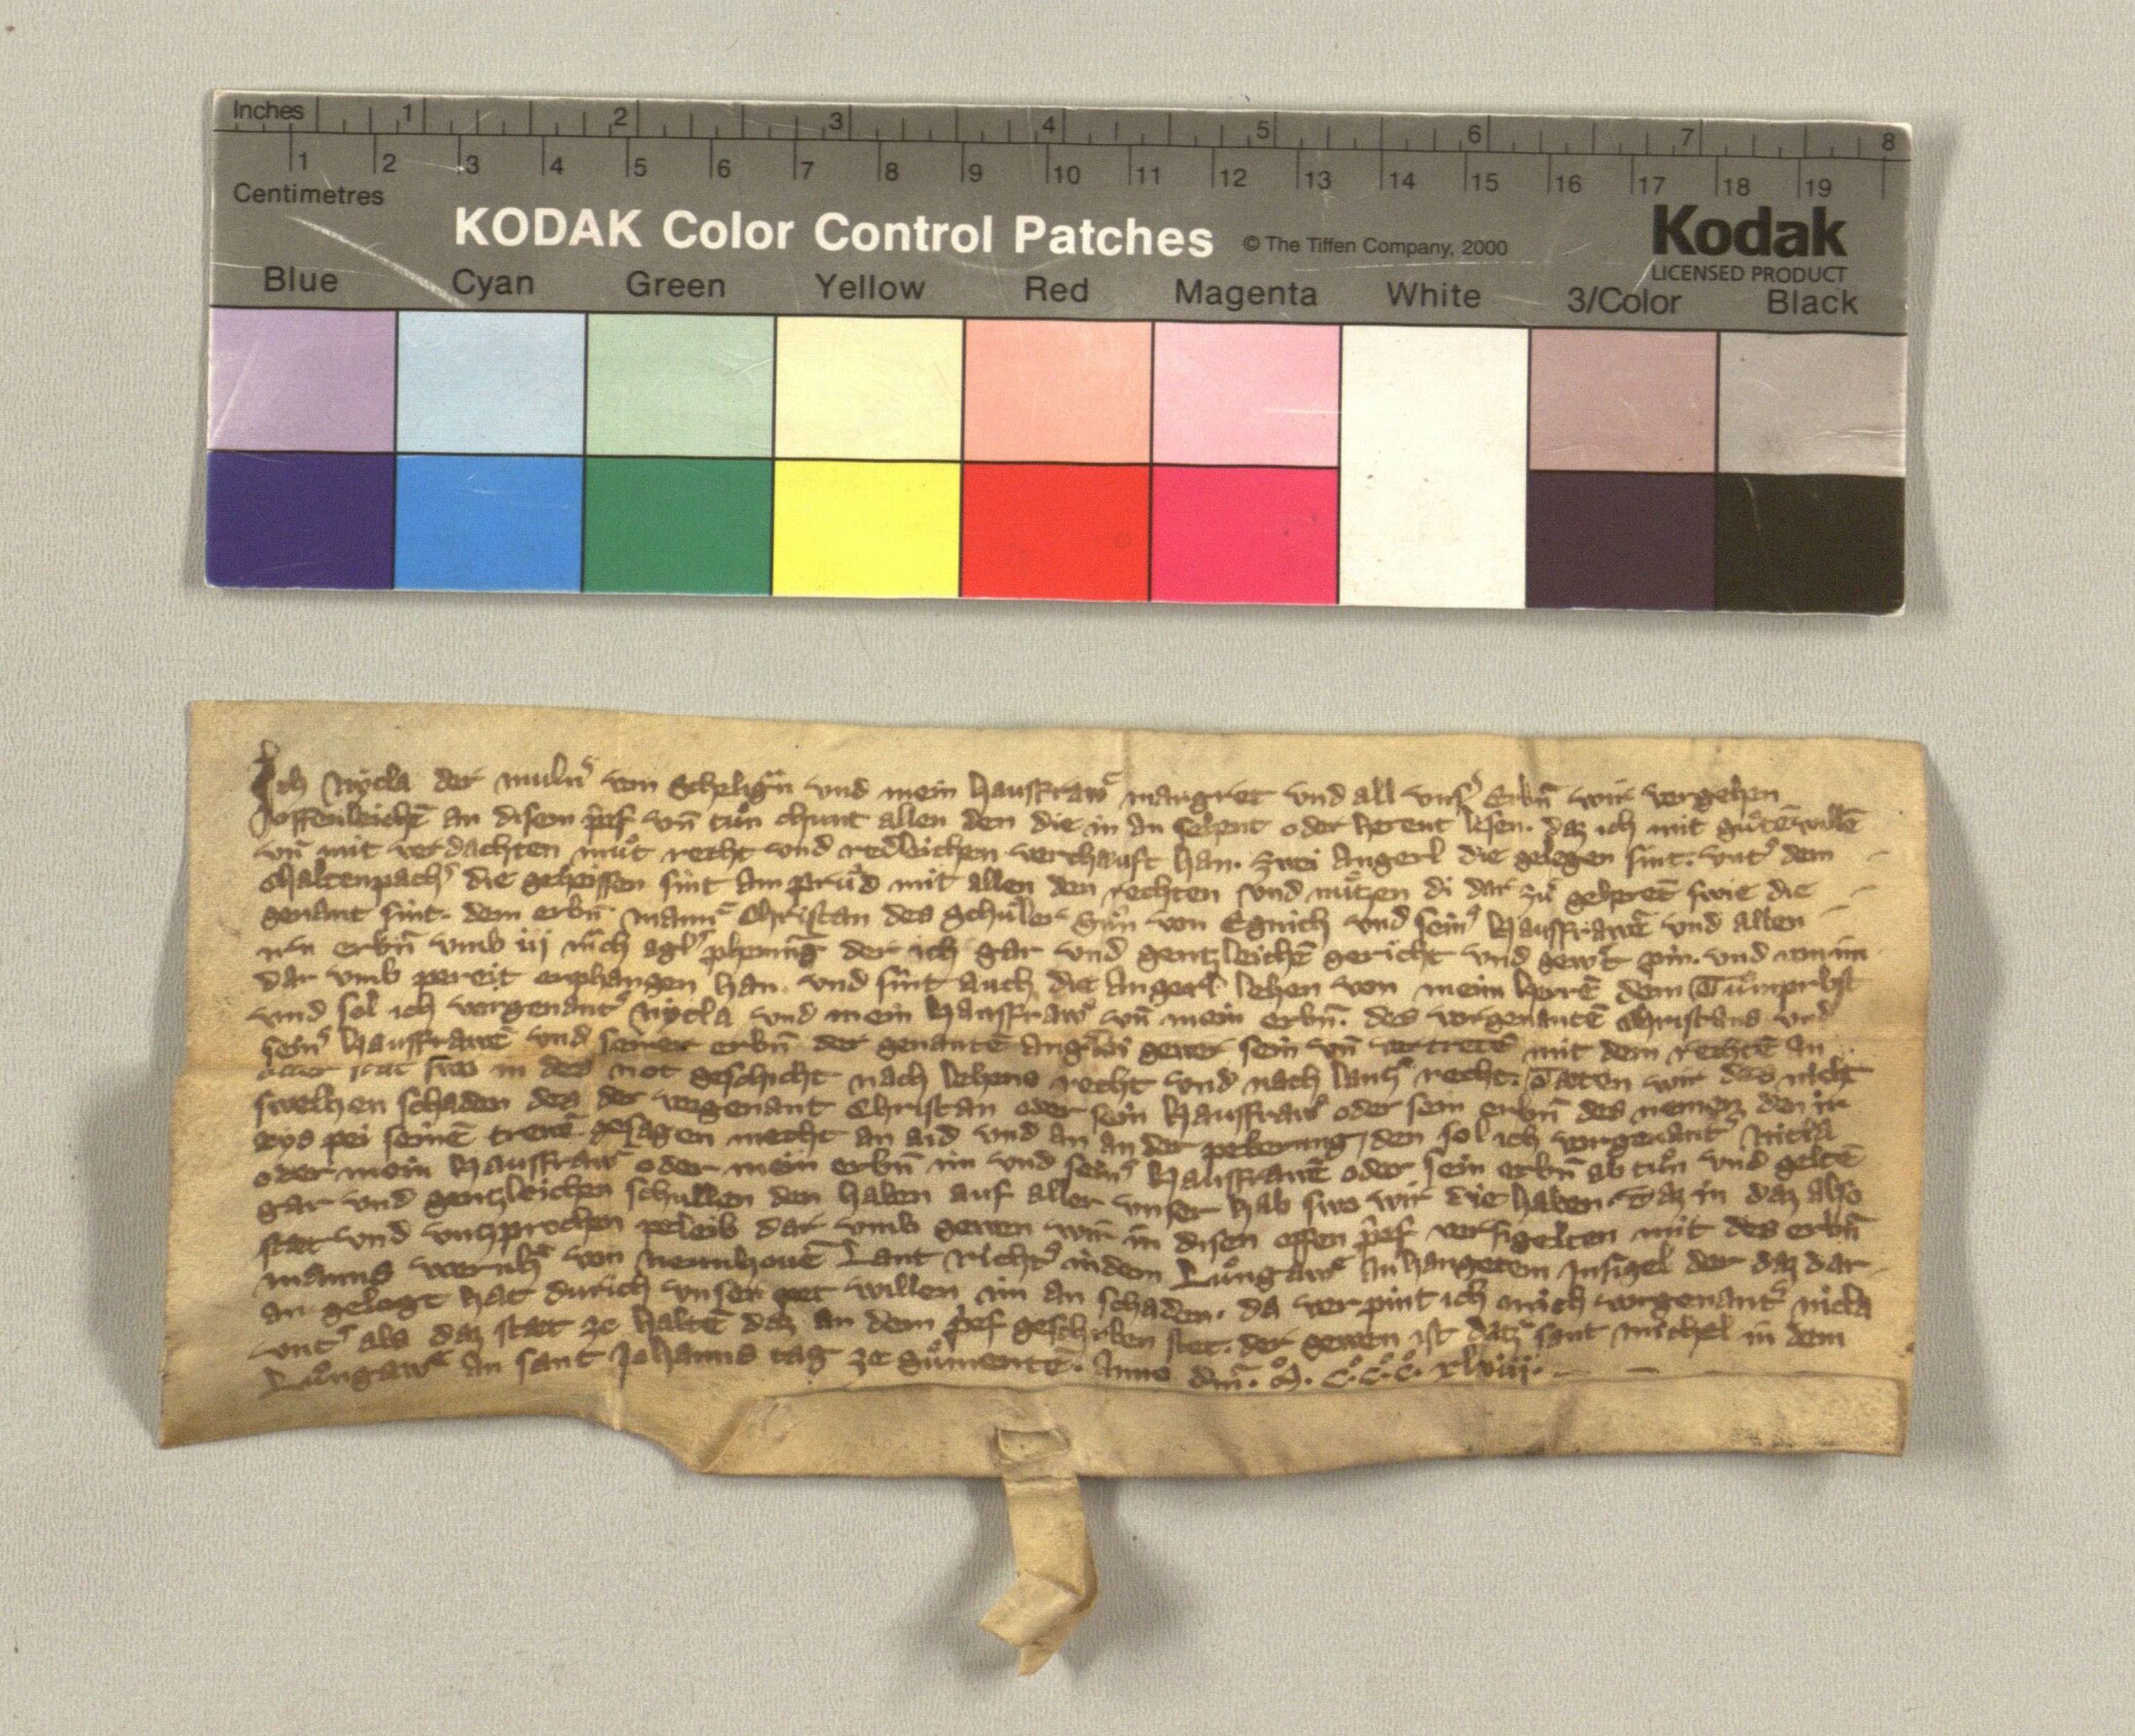 Inches 1 2 3 4 5 6 7 8
1 2 3 4 5 6 7 8 9 10 11 12 13 14 15 16 17 18 19
Centimetres
KODAK Color Control Patches © The Tiffen Company, 2000 Kodak
LICENSED PRODUCT
Blue Cyan Green Yellow Red Magenta White 3/Color Black
Ich Nycla der muln͛ von Scheligñ und mein hausfraw margret und all vns͛ Erbñ wir vergehen
offenleichē an disem p͛ef vñ tůn chunt allen den die in an sehent oder herent lesen. daz ich mit gůtē willē
vñ mit verdachten můt recht und redleichen verchauft han. zwei Angerl die gelegen sint. vnt͛ dem
Chaltenpach͛ die geheissen sint am mit allen den rechten und nützen di dar zů geherēt swie die
genant sint. dem erbñ mann Christan des Schůler sůn von und sein͛ hausfrawē und allen
erbñ vmb iij m͛ch agl͛ phenīg der ich gar und gentzleichē gericht und gew͛t pin. und von im
dar vmb pereit enphangen han. und sint auch die Angerl lehen von meim herrē dem Tůmprobst
und sol ich vorgenant͛ Nycla und mein hausfraw vñ mein erbñ. des vorgenantē Christans und
sein͛ hausfrawē und seiner erbñ der genantē gewer sein vñ vertretē mit dem rechtē an
stat swo in des not geschicht nach lehens recht und nach lantz recht. Tæten wir des nicht
swelhen schaden des der vorgenant Christan oder sein hausfraw oder sein erbñ des nemen den ir
ays pei seinē trewē gesagen mecht an aid und an an der peberung, den sol ich vorgenant͛ Nicla
oder mein hausfraw oder mein erbñ im und sein͛ hausfrawē oder sein erbñ ab tůn und geltē
gar und gentzleichen schullen den haben auf aller unser hab swo wir die haben. Daz in daz also
stæt und vntzprochen peleib dar vmb geben wir in disen offen p͛ef versigelten mit des erbñ
manns wernh͛ von Lant richt͛ in dem Lůngaw anhangetem Insigel der daz dar
an gelegt hat durich unser pet willen im an schaden. da verpint ich mich vorgenant͛ nicla
vnt͛ als daz stæt ze haltē daz an dem p͛ef geschriben stet. der geben ist datz sant Michel in dem
Lůngaw An sant Johanns tag ze sůnwentē. Anno dñi. M. C.C.C. xlviij.